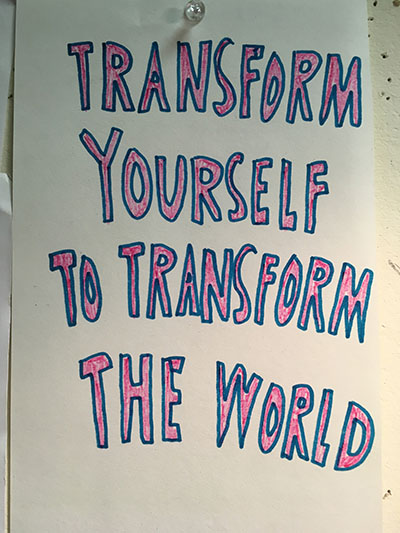 TRANSFORM
YOURSELF
TO TRANSFORM
THE WORLD